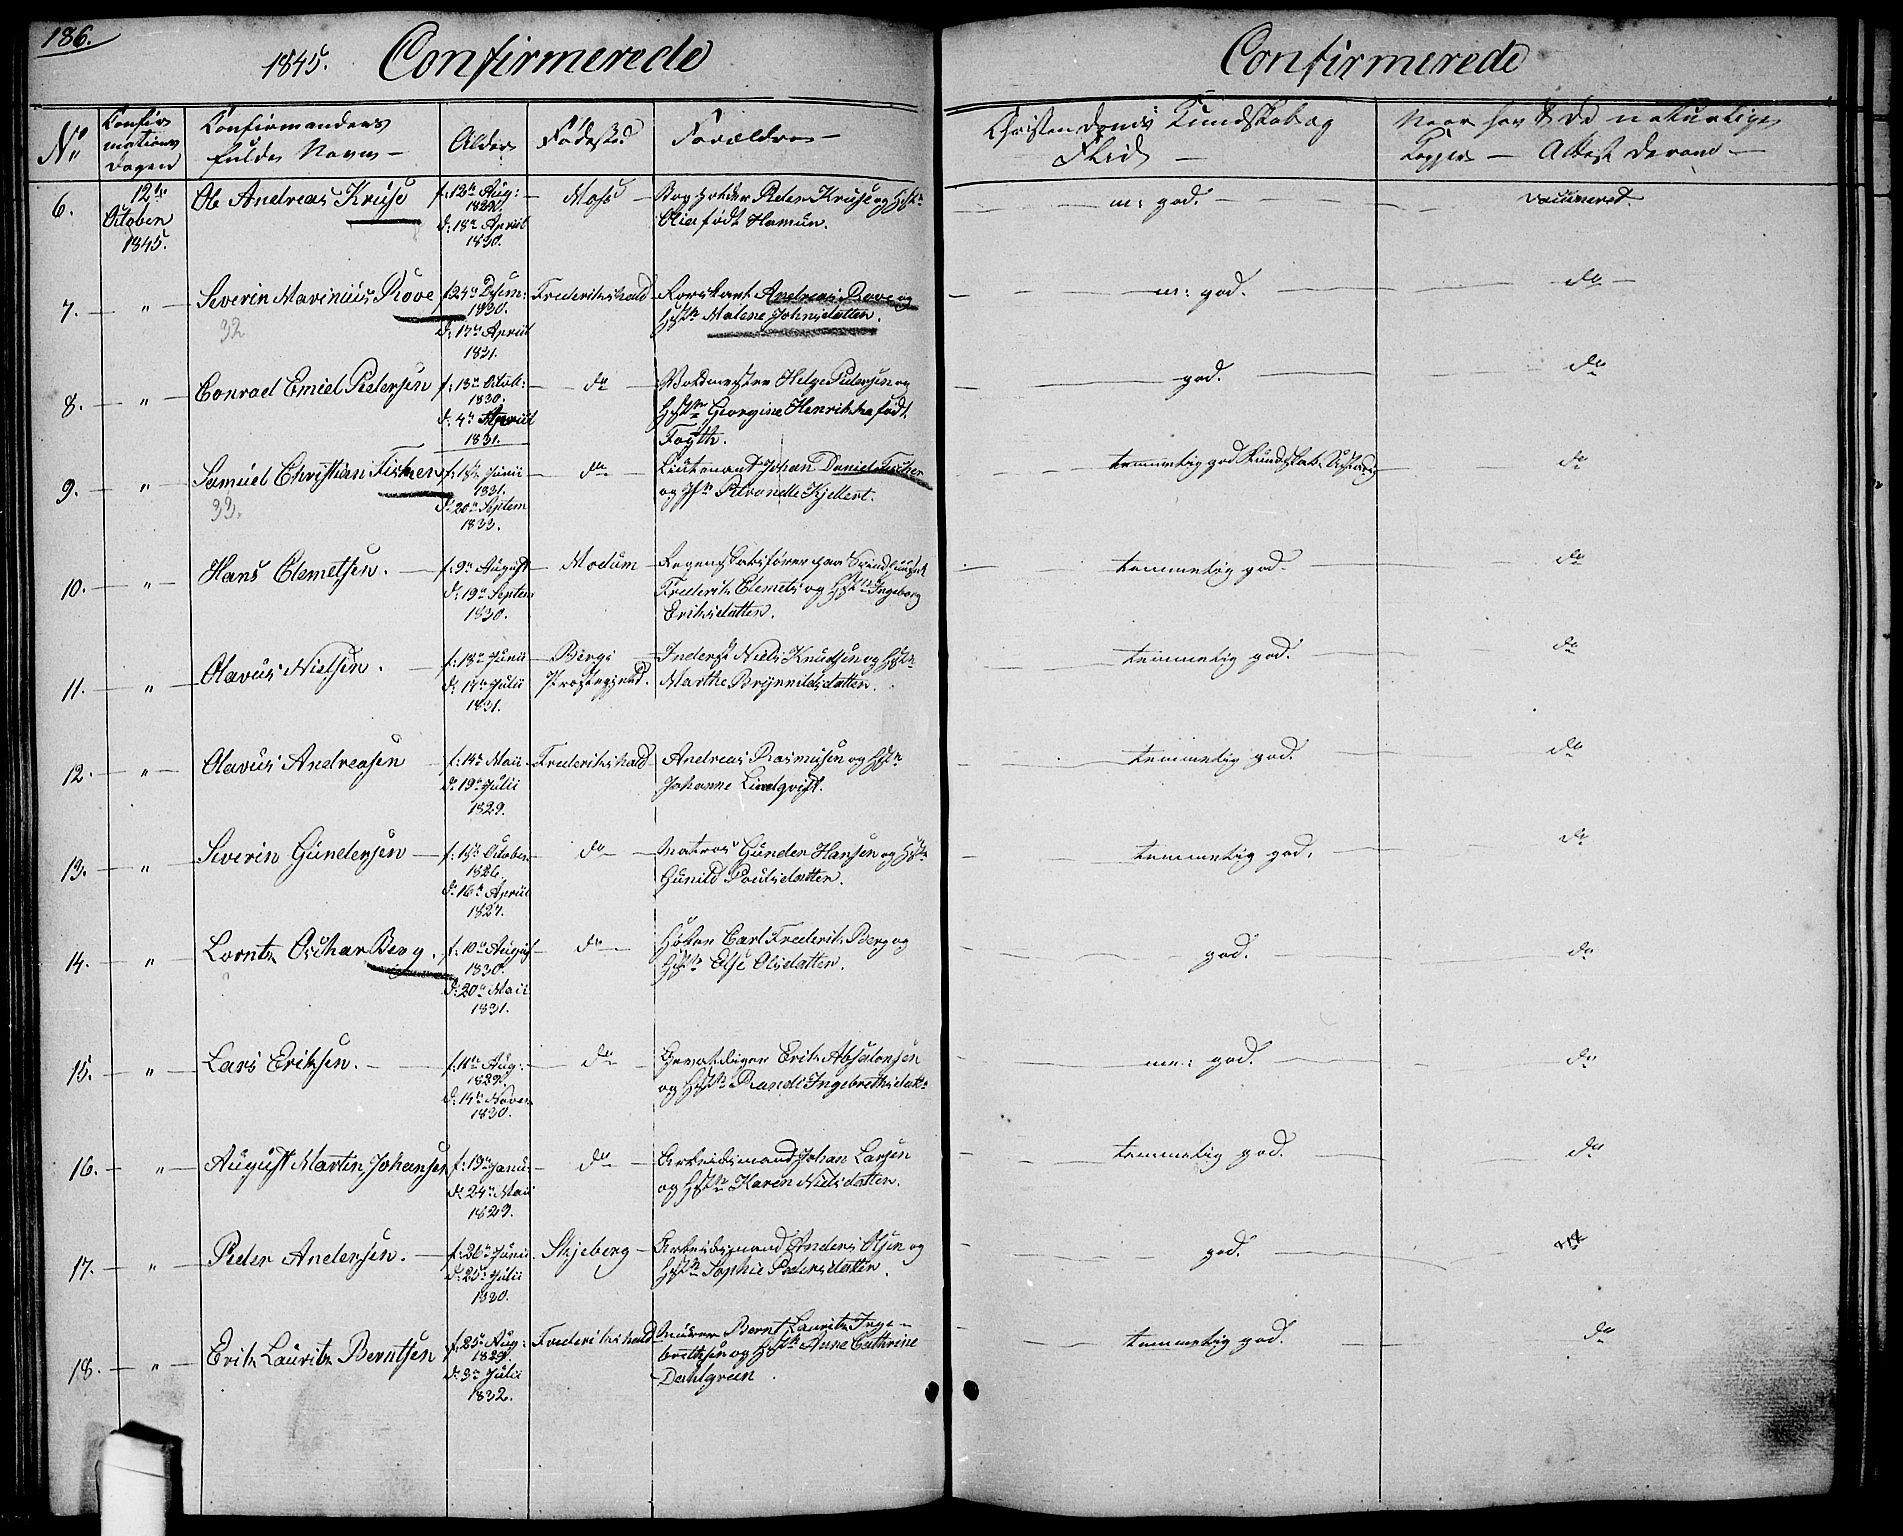 186.
1845. Confirmerede
Confirmerede
No
Confir
mations
Dagen
Confirmandens
fulde Navn
Alder
Fødested
Forældre
Christendoms Kundskab og
Flid
Naar hav. d. de naturlige
Kopper - Attest derom
6.
12te
October
1845.
Ole Andreas Kruse
f: 12te Aug:
d: 18de April
1830.
Moss
Peder Kruse og Hst
født Hamun.
m: god.
vaccineret.
7. "
Severin Marinius Rove
32
f 24de Desem:
1830.
d: 17de April
1831.
Frederikshald
Andreas Rove og
Hst Malene Johnsdatter.
m: god.
do
8. "
Conrad Emiel Pedersen
f: 13de Octob:
1830.
d: 4de April
1831.
do
Helge Pedersen og
Hst Georgine Henrikka født
Foyth.
god.
do
9. "
Samuel Christian Fischer
33.
Junii
1831.
d: 20de Septem
1833.
do
Lieutenant Johan Daniel Fischer
og Hst Petronelle Kjellert.
temmelig god Kundskab
do
10. "
Hans Clemetsen.
f: 9de August
d: 19de Septem
1830.
Modum
Regenskabsfører paa
Frederik Clemets og Hst Ingeborg
Eriksdatter.
temmelig god.
do
11. "
Olavus Nielsen.
f: 18de Junii
d: 17de Julii
1831.
Bergs
Præstegjeld.
Inderst Niels Knudsen og Hst
Marthe Brynnildsdatter.
temmelig god.
do
12. "
Olavus Andreasen
f: 14de Maii
d: 19de Julii
1829.
Frederikshald
Andreas Rasmusen og Hst
Johanne Lindqvist.
temmelig god.
do
13. "
Severin Gundersen
f: 15de October
1826.
d: 16de April
1827.
do
Matros Gunder Hansen og Hst
Gunild Poulsdatter.
temmelig god.
do
14. "
Lornts Oschar Berg.
f: 10de August
1830.
d: 20de Maii
1831.
do
Høker Carl Frederik Berg og
Hst Else Olsdatter.
god.
do
15. "
Lars Eriksen.
f: 11te Aug:
1829.
d: 14de Novem
1830.
do
Erik Absalonsen
og Hst Randi Ingebrethsdatt
m: god.
do
16. "
August Martin Johansen
f: 13de Janu:
d: 24de Maii
1829.
do
Arbeidsmand Johan Larsen
og Hst Karen Nielsdatter.
temmelig god.
do
17. "
Peder Andersen.
f: 26de Junii
d: 25de Julii
1830.
Skjeberg
Arbeidsmand Anders Olsen og
Hst Sophie Pedersdatter.
god.
18. "
Erik Lauritz Berntsen
f: 25de Aug:
1829.
d: 3de Julii
1832.
Frederikshald
Murer Bernt Lauritz Inge-
brethsen og Hst Anne Cathrine
Dahlgreen.
temmelig god.
do